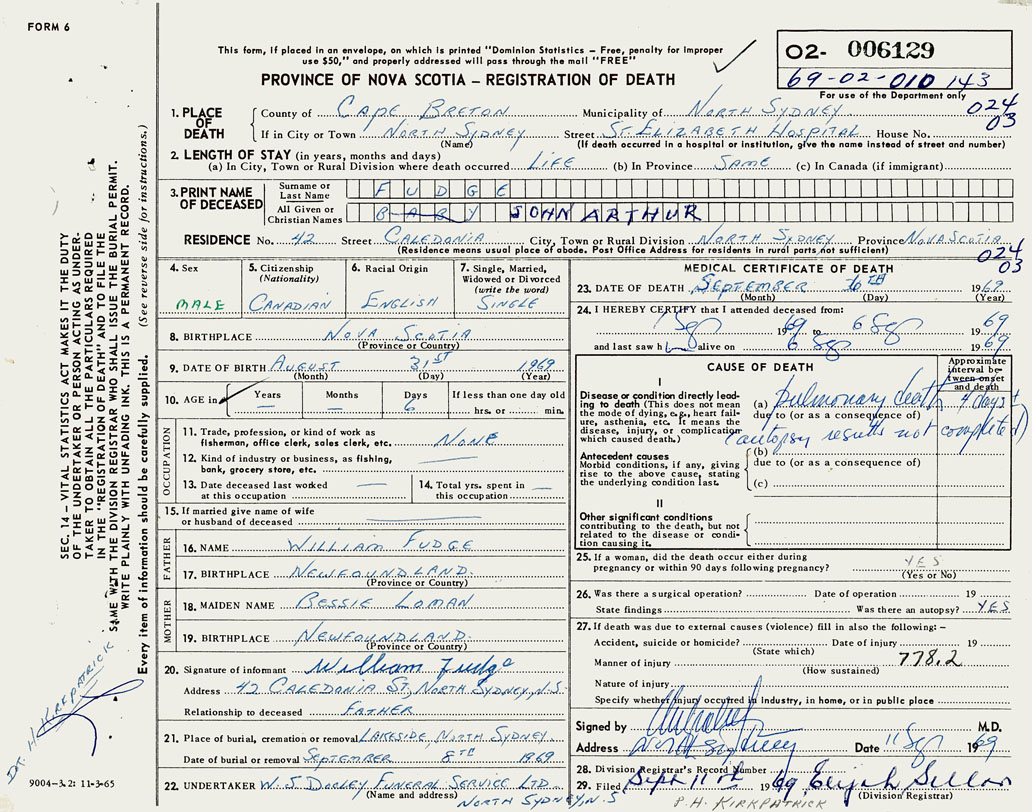 FORM 6
This form, if placed in an envelope, on which is printed "Dominion Statistics – Free, penalty for improper
use $50," and properly addressed will pass through the mail "FREE"
PROVINCE OF NOVA SCOTIA – REGISTRATION OF DEATH
02- 006129
69-02-010 143
For use of the Department only
024
03
1. PLACE OF DEATH
County of CAPE BRETON Municipality of NORTH SYDNEY
If in City or Town NORTH SYDNEY Street ST. ELIZABETH HOSPITAL House No.
(Name) (If death occurred in a hospital or institution, give the name instead of street and number)
2. LENGTH OF STAY (in years, months and days)
(a) In City, Town or Rural Division where death occurred LIFE (b) In Province SAME (c) In Canada (if immigrant)
3. PRINT NAME OF DECEASED
Surname or Last Name FUDGE
All Given or Christian Names BABY JOHN ARTHUR
RESIDENCE No. 42 Street CALEDONIA City, Town or Rural Division NORTH SYDNEY Province NOVA SCOTIA
(Residence means usual place of abode. Post Office Address for residents in rural parts not sufficient)
024
03
4. Sex
MALE
5. Citizenship (Nationality)
CANADIAN
6. Racial Origin
ENGLISH
7. Single, Married, Widowed or Divorced (write the word)
SINGLE
8. BIRTHPLACE NOVA SCOTIA
(Province or Country)
9. DATE OF BIRTH AUGUST 31ST 1969
(Month) (Day) (Year)
10. AGE in Years — Months — Days 6 If less than one day old hrs. or min.
OCCUPATION
11. Trade, profession, or kind of work as
fisherman, office clerk, sales clerk, etc. NONE
12. Kind of industry or business, as fishing,
bank, grocery store, etc. —
13. Date deceased last worked
at this occupation —
14. Total yrs. spent in
this occupation —
15. If married give name of wife
or husband of deceased —
FATHER
16. NAME WILLIAM FUDGE
17. BIRTHPLACE NEWFOUNDLAND.
(Province or Country)
MOTHER
18. MAIDEN NAME BESSIE LOMAN
19. BIRTHPLACE NEWFOUNDLAND.
(Province or Country)
20. Signature of informant William Fudge
Address 42 CALEDONIA ST, NORTH SYDNEY, N.S.
Relationship to deceased FATHER
21. Place of burial, cremation or removal LAKESIDE, NORTH SYDNEY
Date of burial or removal SEPTEMBER 8TH 1969
22. UNDERTAKER W. J. DOOLEY FUNERAL SERVICE LTD
(Name and address) NORTH SYDNEY, N.S.
MEDICAL CERTIFICATE OF DEATH
23. DATE OF DEATH SEPTEMBER 6TH 1969
(Month) (Day) (Year)
24. I HEREBY CERTIFY that I attended deceased from:
1 Sep 1969 to 6 Sep 1969
and last saw h alive on 6 Sep 1969
CAUSE OF DEATH
Approximate interval between onset and death
I
Disease or condition directly leading to death (This does not mean the mode of dying, e.g., heart failure, asthenia, etc. It means the disease, injury, or complication which caused death.)
(a) pulmonary death 4 days +
due to (or as a consequence of)
(autopsy results not completed)
Antecedent causes
Morbid conditions, if any, giving rise to the above cause, stating the underlying condition last.
(b)
due to (or as a consequence of)
(c)
II
Other significant conditions
contributing to the death, but not related to the disease or condition causing it.
25. If a woman, did the death occur either during
pregnancy or within 90 days following pregnancy? YES
(Yes or No)
26. Was there a surgical operation? Date of operation 19
State findings Was there an autopsy? YES
27. If death was due to external causes (violence) fill in also the following: –
Accident, suicide or homicide? Date of injury 19
(State which)
Manner of injury 778.2
(How sustained)
Nature of injury
Specify whether injury occurred in industry, in home, or in public place
Signed by M.D.
Address North Sydney Date 11 Sep 1969
28. Division Registrar's Record Number
29. Filed Sept 11th 1969 Elijah
(Division Registrar)
P. H. KIRKPATRICK
SEC. 14 – VITAL STATISTICS ACT MAKES IT THE DUTY
OF THE UNDERTAKER OR PERSON ACTING AS UNDER-
TAKER TO OBTAIN ALL THE PARTICULARS REQUIRED
IN THE "REGISTRATION OF DEATH" AND TO FILE THE
SAME WITH THE DIVISION REGISTRAR WHO SHALL ISSUE THE BURIAL PERMIT.
WRITE PLAINLY WITH UNFADING INK. THIS IS A PERMANENT RECORD.
Every item of information should be carefully supplied. (See reverse side for instructions.)
DR. H KIRKPATRICK
9004-3.2: 11-3-65